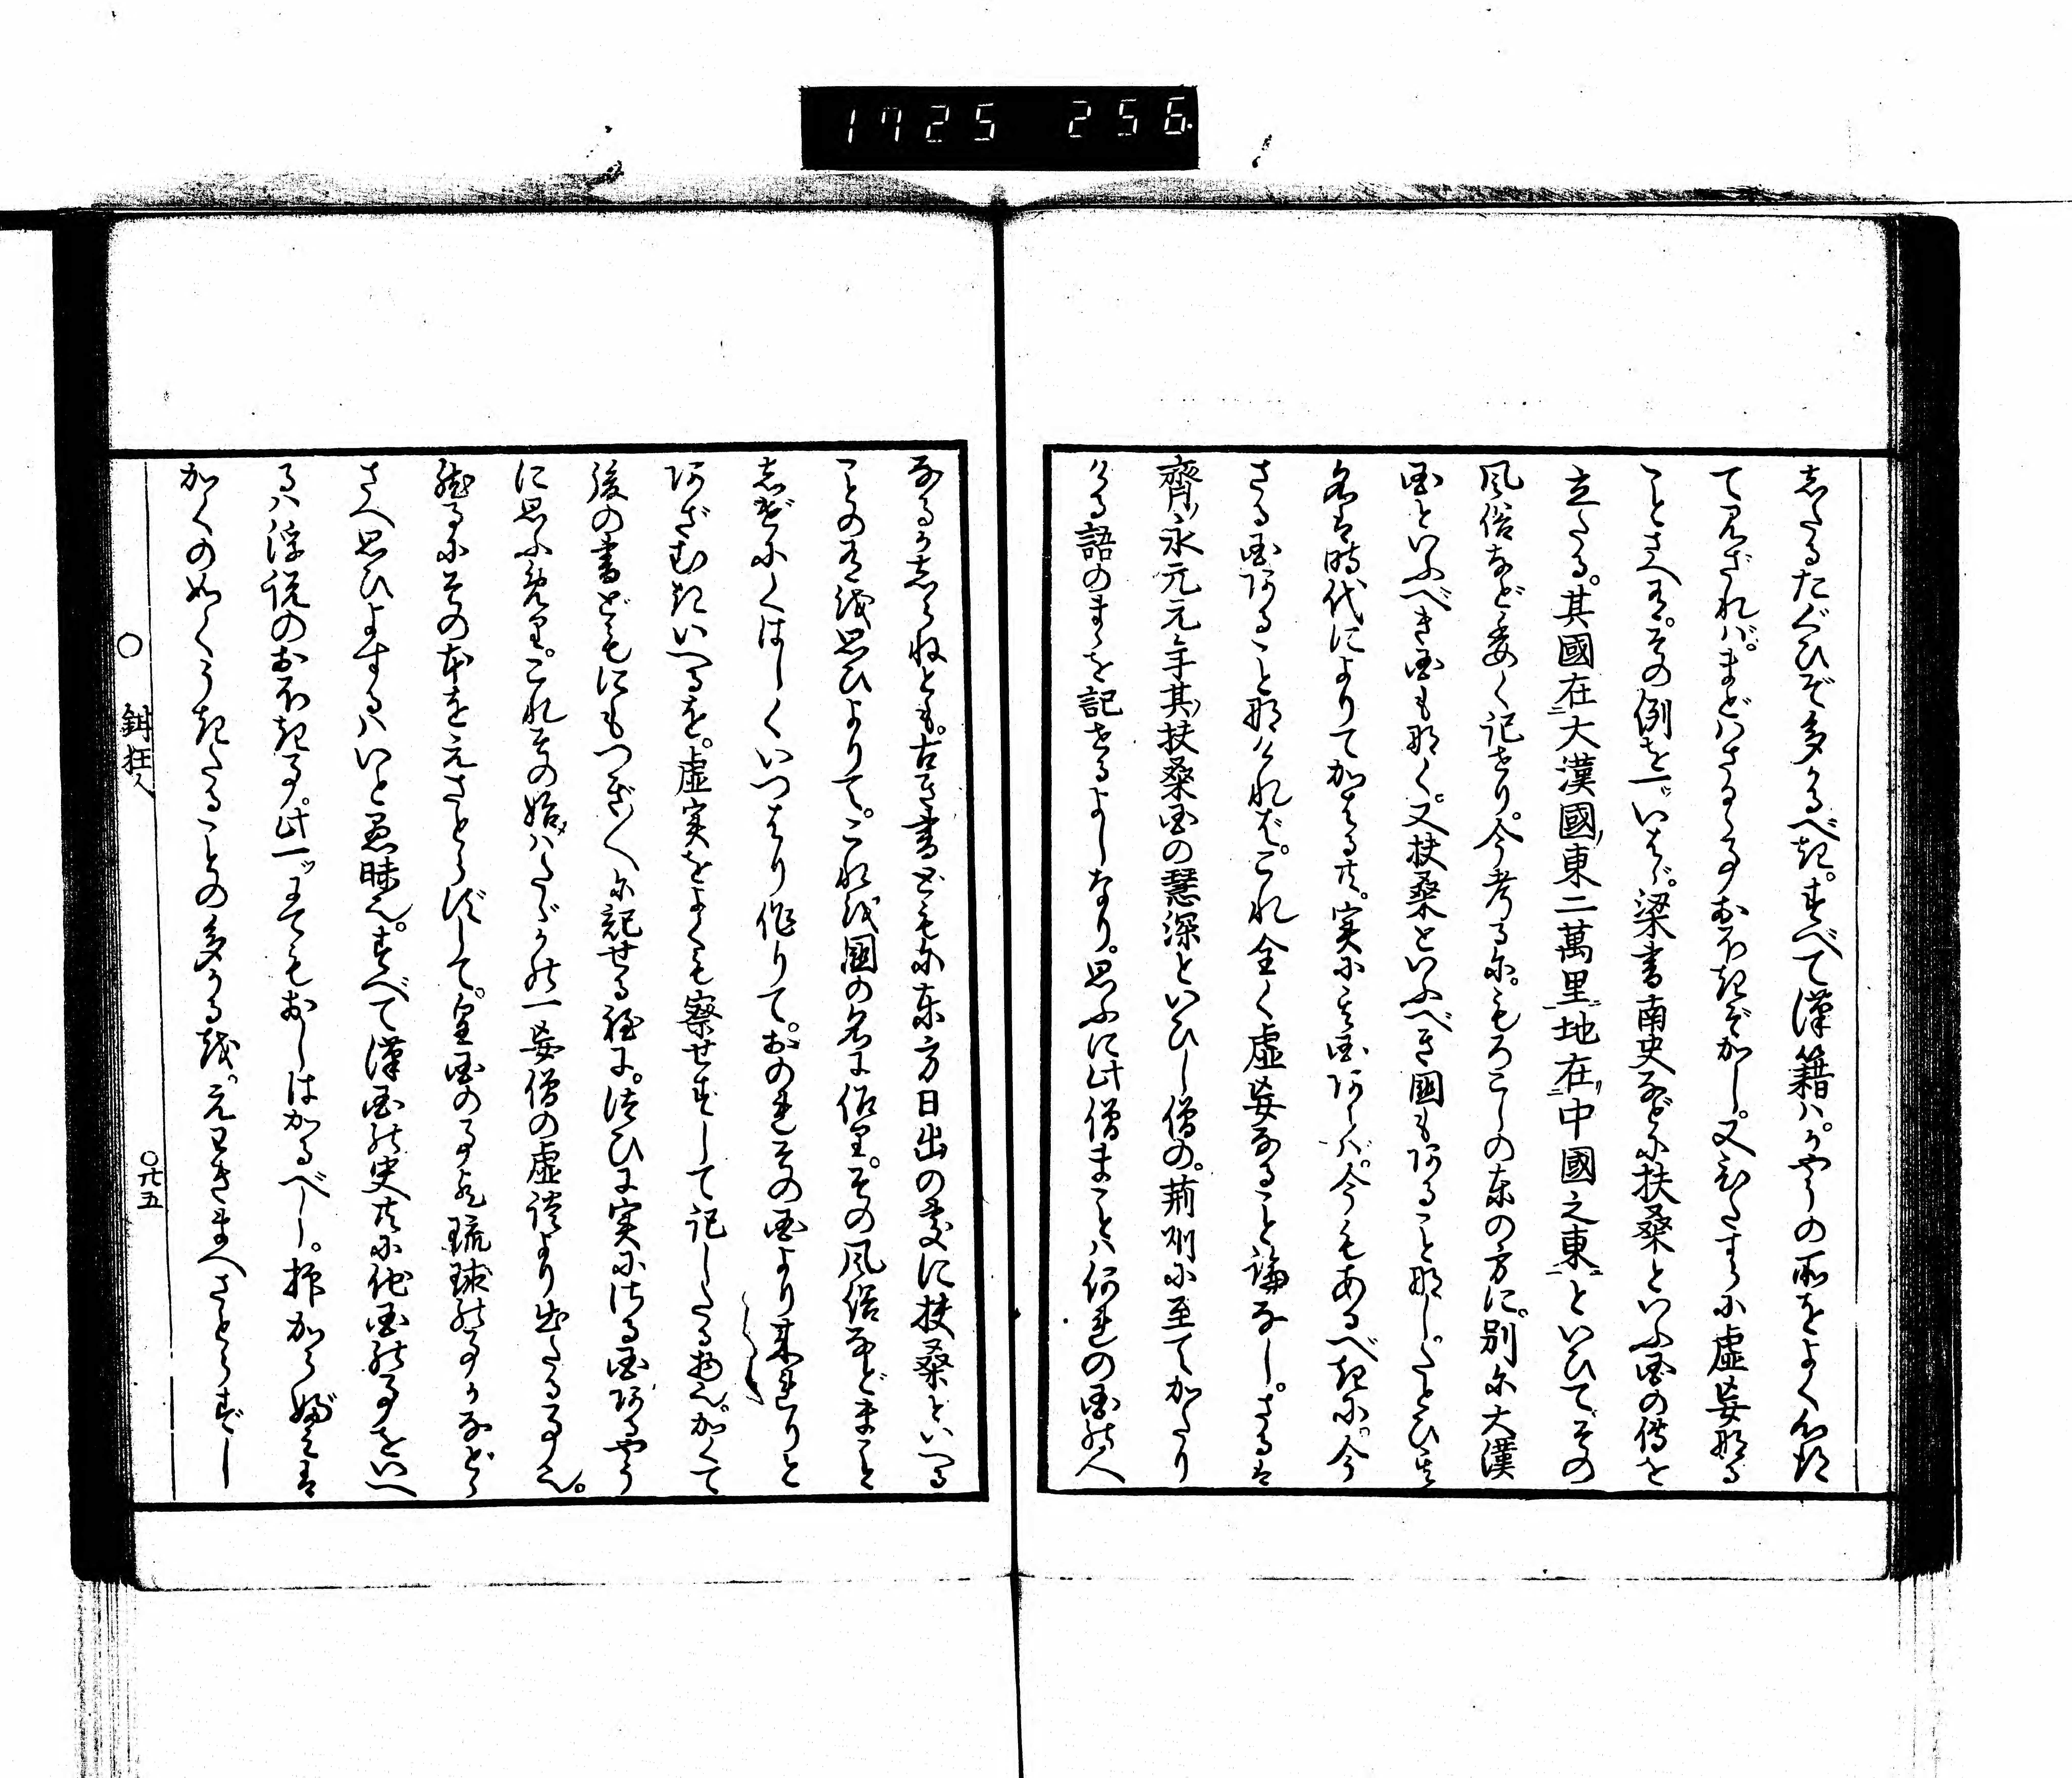 1725 256
したるたぐひぞ多かるべき。すべて漢籍ハ。かやうの所をよく心得
て見ざれバ。まどハさるゝ事おほきぞかし。又ひたすらに虚妄なる
ことさへ有。その例を一ッいはゞ。梁書南史などに扶桑といふ国の傳を
立たる。其國在大漢國東二萬里地在中國之東といひて。その
風俗など委く記せり。今考るに。もろこしの東の方に。別に大漢
国といふべき国も那く。又扶桑といふべき國もあること那し。たとひ其
名は時代によりてかはる共。実に其国あらバ。今もあるべきに。今
さる国あること那けれど。これ全く虚妄なること論なし。さるは
齊永元元年其扶桑国の慧深といひし僧の。荊州に至てかたり
ける語のまゝを記せるよしなり。思ふに此僧まことハ何れの国の人
なるかしらねとも。古き書どもに東方日出の處に扶桑といへる
ことの有を思ひよりて。これを國の名に作り。その風俗などまこと
しげにくはしくいつはり作りて。おのれその国より来れりと
あざむきいへるを。虚実をよくも察せずして記したる物也。かくて
後の書どもにもつぎ〱に記せる程に。つひに実にさる国あるやう
に思ふめり。これその始ハたゞかの一妄僧の虚談より出たる事也。
然るにその本をえさとらずして。皇国の事歟琉球の事かなどゝ
さへ思ひよするハいと愚昧也。すべて漢国の史共に他国の事をいへ
るハ浮説のおほき事。此一ッにてもおしはかるべし。抑から婦みは
かくの如くうきたることの多かるを。えわきまへさとらずし
〇 鉗狂人
〇廿五